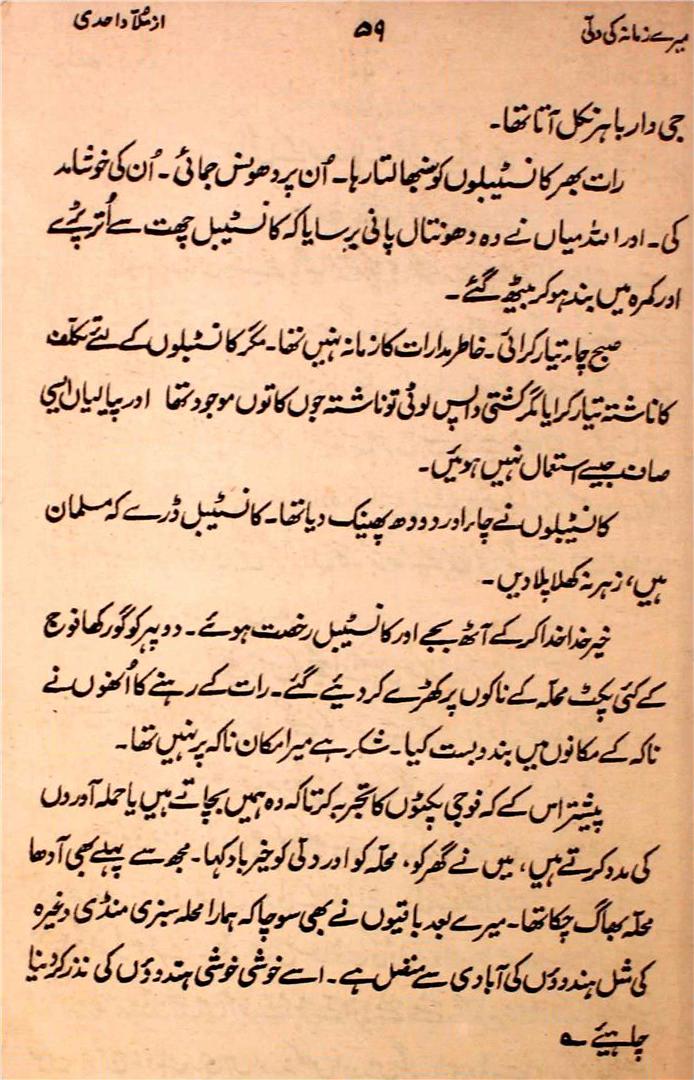 میرے زمانہ کی دلّی ۵۹ از ملّا واحدی
جی دار باہر نکل آتا تھا۔
رات بھر کانسٹیبلوں کو سنبھالتا رہا۔ اُن پر دھونس جمائی۔ اُن کی خوشامد
کی۔ اور اللہ میاں نے وہ دھونتال پانی برسایا کہ کانسٹیبل چھت سے اُتر پڑے
اور کمرہ میں بند ہو کر بیٹھ گئے۔
صبح چاء تیار کرائی۔ خاطر مدارات کا زمانہ نہیں تھا۔ مگر کانسٹبلوں کے لئے تکلّف
کا ناشتہ تیار کرایا مگر کشتی واپس لوٹی تو ناشتہ جوں کا توں موجود تھا اور پیالیاں ایسی
صاف جیسے استعمال نہیں ہوئیں۔
کانسٹیبلوں نے چاء اور دودھ پھینک دیا تھا۔ کانسٹیبل ڈرے کہ مسلمان
ہیں، زہر نہ کھلا پلا دیں۔
خیر خدا خدا کر کے آٹھ بجے اور کانسٹیبل رخصت ہوئے۔ دوپہر کو گورکھا فوج
کے کئی پکٹ محلّہ کے ناکوں پر کھڑے کر دیئے گئے۔ رات کے رہنے کا اُنھوں نے
ناکہ کے مکانوں میں بندوبست کیا۔ شکر ہے میرا مکان ناکہ پر نہیں تھا۔
پیشتر اس کے کہ فوجی پکٹوں کا تجربہ کرتا کہ وہ ہمیں بچاتے ہیں یا حملہ آوروں
کی مدد کرتے ہیں، میں نے گھر کو، محلّہ کو اور دلّی کو خیرباد کہا۔ مجھ سے پہلے بھی آدھا
محلّہ بھاگ چکا تھا۔ میرے بعد باقیوں نے بھی سوچا کہ ہمارا محلہ سبزی منڈی وغیرہ
کی مثل ہندوؤں کی آبادی سے متصل ہے۔ اسے خوشی خوشی ہندوؤں کی نذر کر دینا
چاہیئے ؎